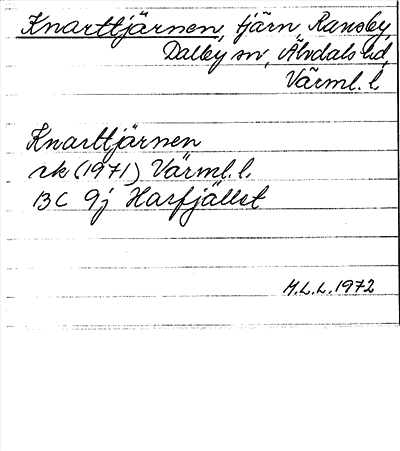 Knarttjärnen, tjärn, Ransby,
Dalby sn, Älvdals hd,
Värml. l.
Knarttjärnen
rk (1971) Värml. l.
13C 9j Harfjället
M.L.L. 1972